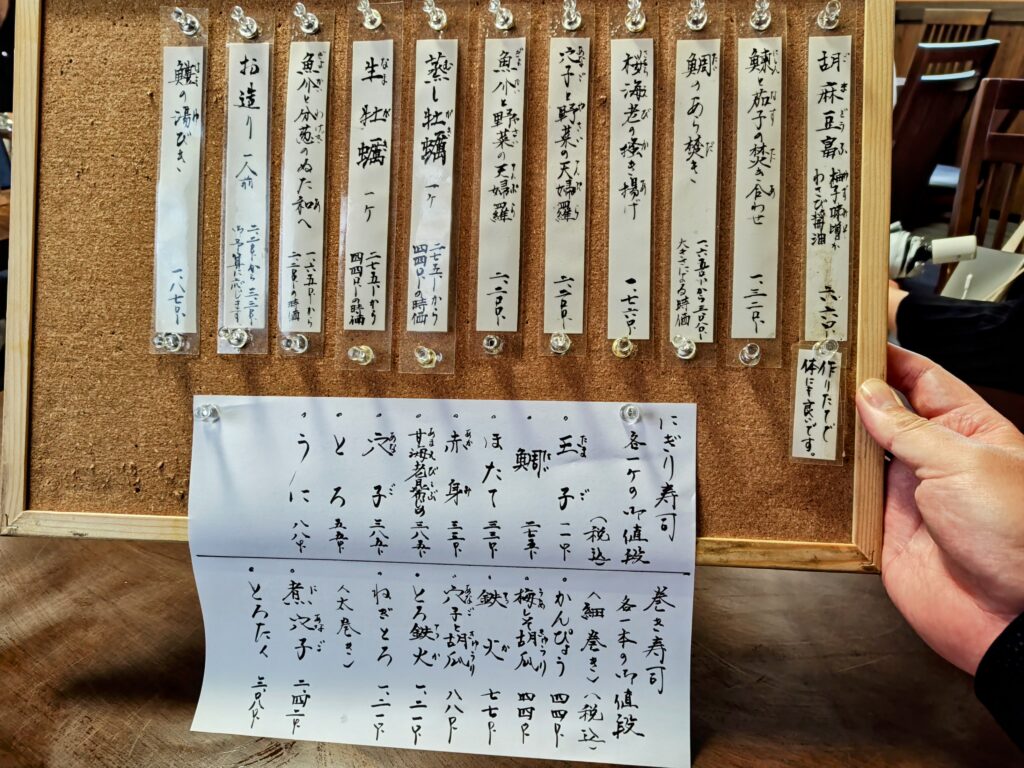 胡麻豆富 柚子味噌か わさび醤油 六六〇円
作りたてで
体にも良いです。
鰊と茄子の焚き合わせ 一、三二〇円
鯛のあら焚き 一、六五〇円から三、三〇〇円 大きさによる時価
桜海老の掻き揚げ 一、七六〇円
穴子と野菜の天婦羅 二、二〇〇円
魚介と野菜の天婦羅 二、二〇〇円
蒸し牡蠣 一ケ 二七五円から 四四〇円の時価
生牡蠣 一ケ 二七五円から 四四〇円の時価
魚介と分葱のぬた和へ 一、六五〇円から 二、二〇〇円の時価
お造り 一人前 二、二〇〇円から三、三〇〇円 御予算に応じます
の湯びき 一、八七〇円
にぎり寿司
各一ケの御値段
(税込)
・玉子 一一〇円
・鯛 二七五円
・ほたて 三三〇円
・赤身 三三〇円
・甘海老昆布〆 三八五円
・穴子 三八五円
・とろ 五五〇円
・うに 八八〇円
巻き寿司
各一本の御値段
(細巻き)(税込)
・かんぴょう 四四〇円
・梅しそ胡瓜 四四〇円
・鉄火 七七〇円
・穴子と胡瓜 八八〇円
・とろ鉄火 一、二一〇円
・ねぎとろ 一、二一〇円
(太巻き)
・煮穴子 二、四二〇円
・とろたく 三、〇八〇円